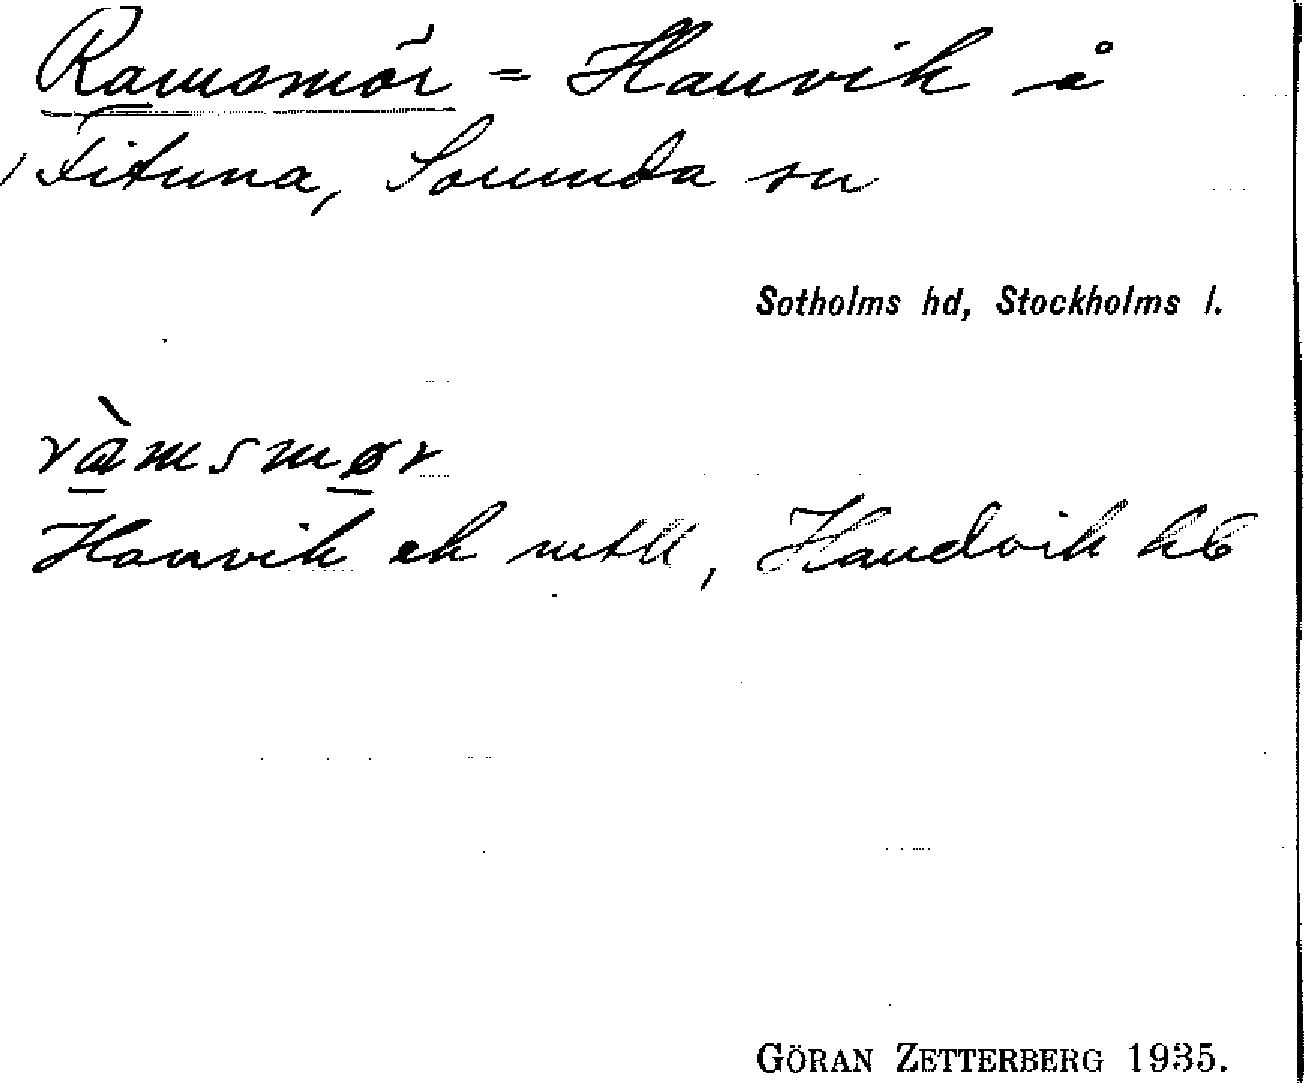 Ramsmör = Hanvik å
Fituna, Sorunda sn
Sotholms hd, Stockholms l.
ràmsmør
Hanvik ek , Handvik hb
GÖRAN ZETTERBERG 1935.